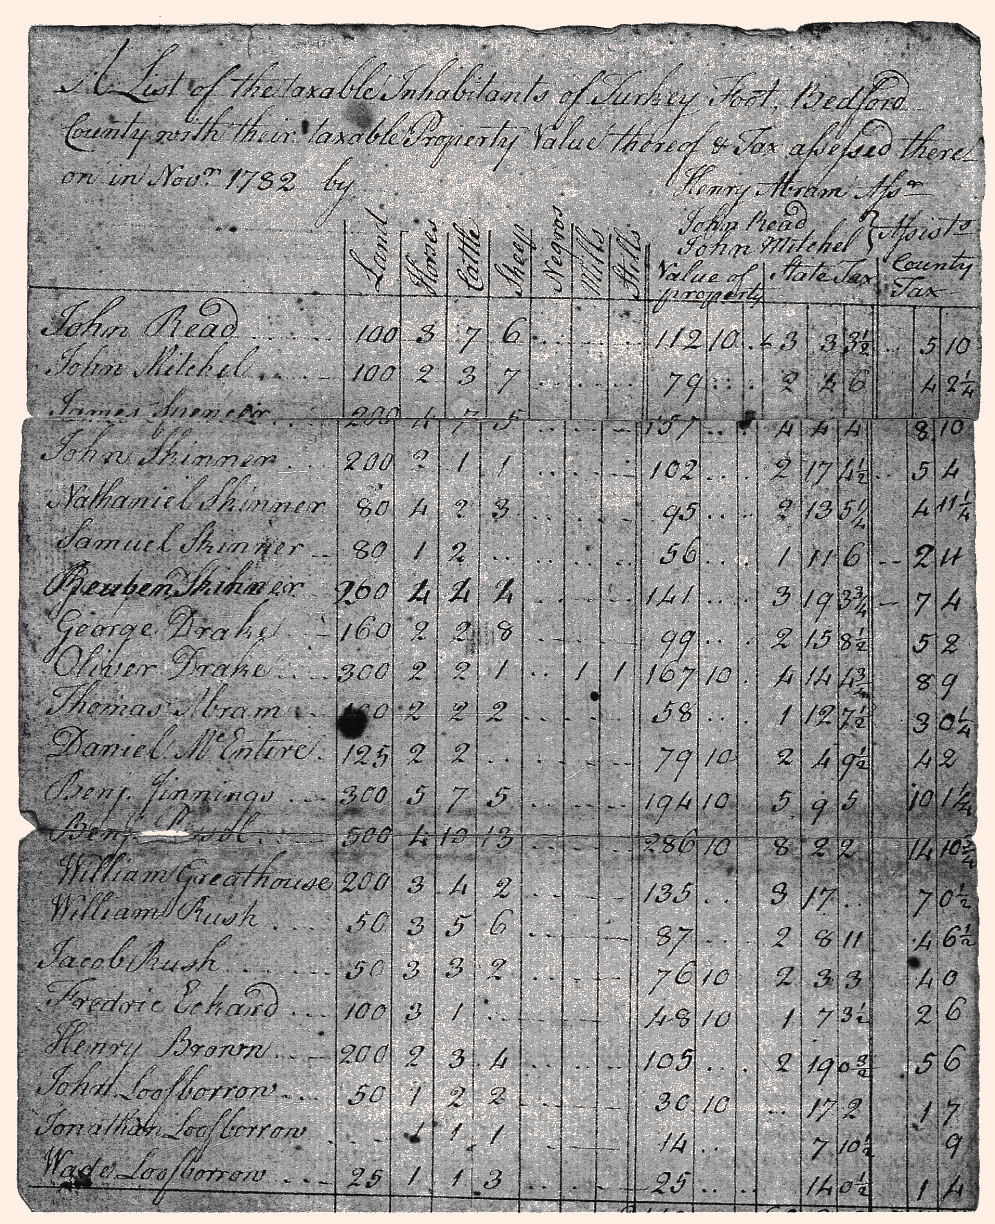 A List of the taxable Inhabitants of Turkey Foot, Bedford
County with their taxable Property Value thereof & Tax assessed there
on in Novr. 1782 by Henry Abram Assr
John Read
John Mitchel } Assists
Land Horses Cattle Sheep Negros Mills Stills Value of property State Tax County Tax
John Read 100 3 7 6 112 10 £3 3 3½ 5 10
John Mitchel 100 2 3 7 79 2 4 6 4 2¼
James Spencer 200 4 7 5 157 4 4 4 8 10
John Skinner 200 2 1 1 102 2 17 4½ 5 4
Nathaniel Skinner 80 4 2 3 95 2 13 5¼ 4 11¼
Samuel Skinner 80 1 2 56 1 11 6 2 11
Reuben Skinner 260 4 4 4 141 3 19 3¾ 7 4
George Drake 160 2 2 8 99 2 15 8½ 5 2
Oliver Drake 300 2 2 1 1 1 167 10 4 14 4¾ 8 9
Thomas Abram 2 2 2 58 1 12 7½ 3 0¼
Daniel McEntire 125 2 2 79 10 2 4 9½ 4 2
Benj. Jinnings 300 5 7 5 194 10 5 9 5 10 1¼
Benj. 500 4 10 13 286 10 8 2 2 14 10¾
William Greathouse 200 3 4 2 135 3 17 7 0½
William Rush 50 3 5 6 87 2 8 11 4 6½
Jacob Rush 50 3 3 2 76 10 2 3 3 4 0
Fredric Eckard 100 3 1 48 10 1 7 3½ 2 6
Henry Brown 200 2 3 4 105 2 19 0¾ 5 6
John Loofborrow 50 1 2 2 30 10 17 2 1 7
Jonathan Loofborrow 1 1 1 14 7 10½ 9
Wade Loofborrow 25 1 1 3 25 14 0½ 1 4